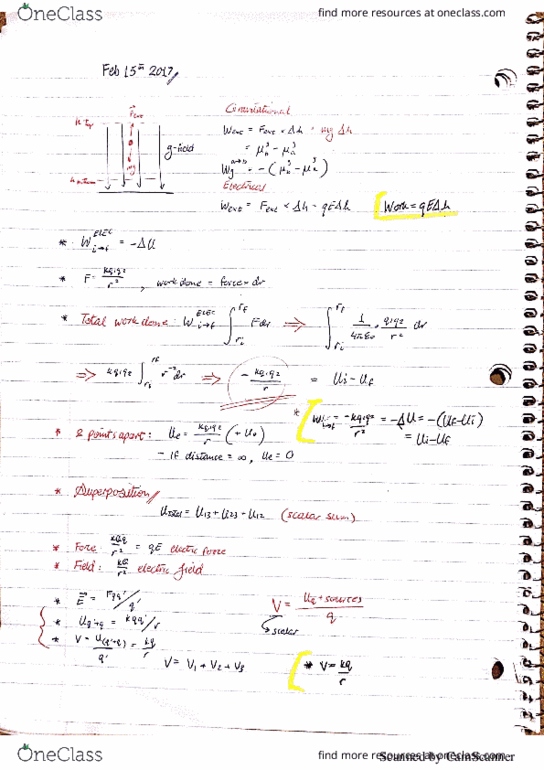 OneClass
find more resources at oneclass.com
Feb 15th 2017
Fext
h top
g-field
mg
h bottom
Gravitational
Wext = Fext × Δh = mg Δh
Electrical
Wext = Fext × Δh = qEΔh
Work = qEΔh
* W i→f ELEC = -ΔU
* F = kq1q2/r² , work done = force × dr
* Total work done: W i→f ELEC ∫ri rf F dr ⇒ ∫ri rf 1/4πε0 · q1q2/r² dr
⇒ kq1q2 ∫ri rf r⁻² dr ⇒ - kq1q2/r = Ui - Uf
* W i→f = -kq1q2/r² = -ΔU = -(Uf-Ui)
= Ui - Uf
* 2 points apart: Ue = kq1q2/r (+U0)
- If distance = ∞, Ue = 0
* Superposition
Utotal = U13 + U23 + U12 (scalar sum)
* Force: kQq/r² = qE electric force
* Field: electric field
* E = Fqq'/q'
* Uq'+q = kqq'/r
* V = U(q'+q)/q' = kq/r
V = Uq + sources/q
↳ scalar
V = V1 + V2 + V3
* V = kq/r
OneClass
find more resources at oneclass.com
Scanned by CamScanner